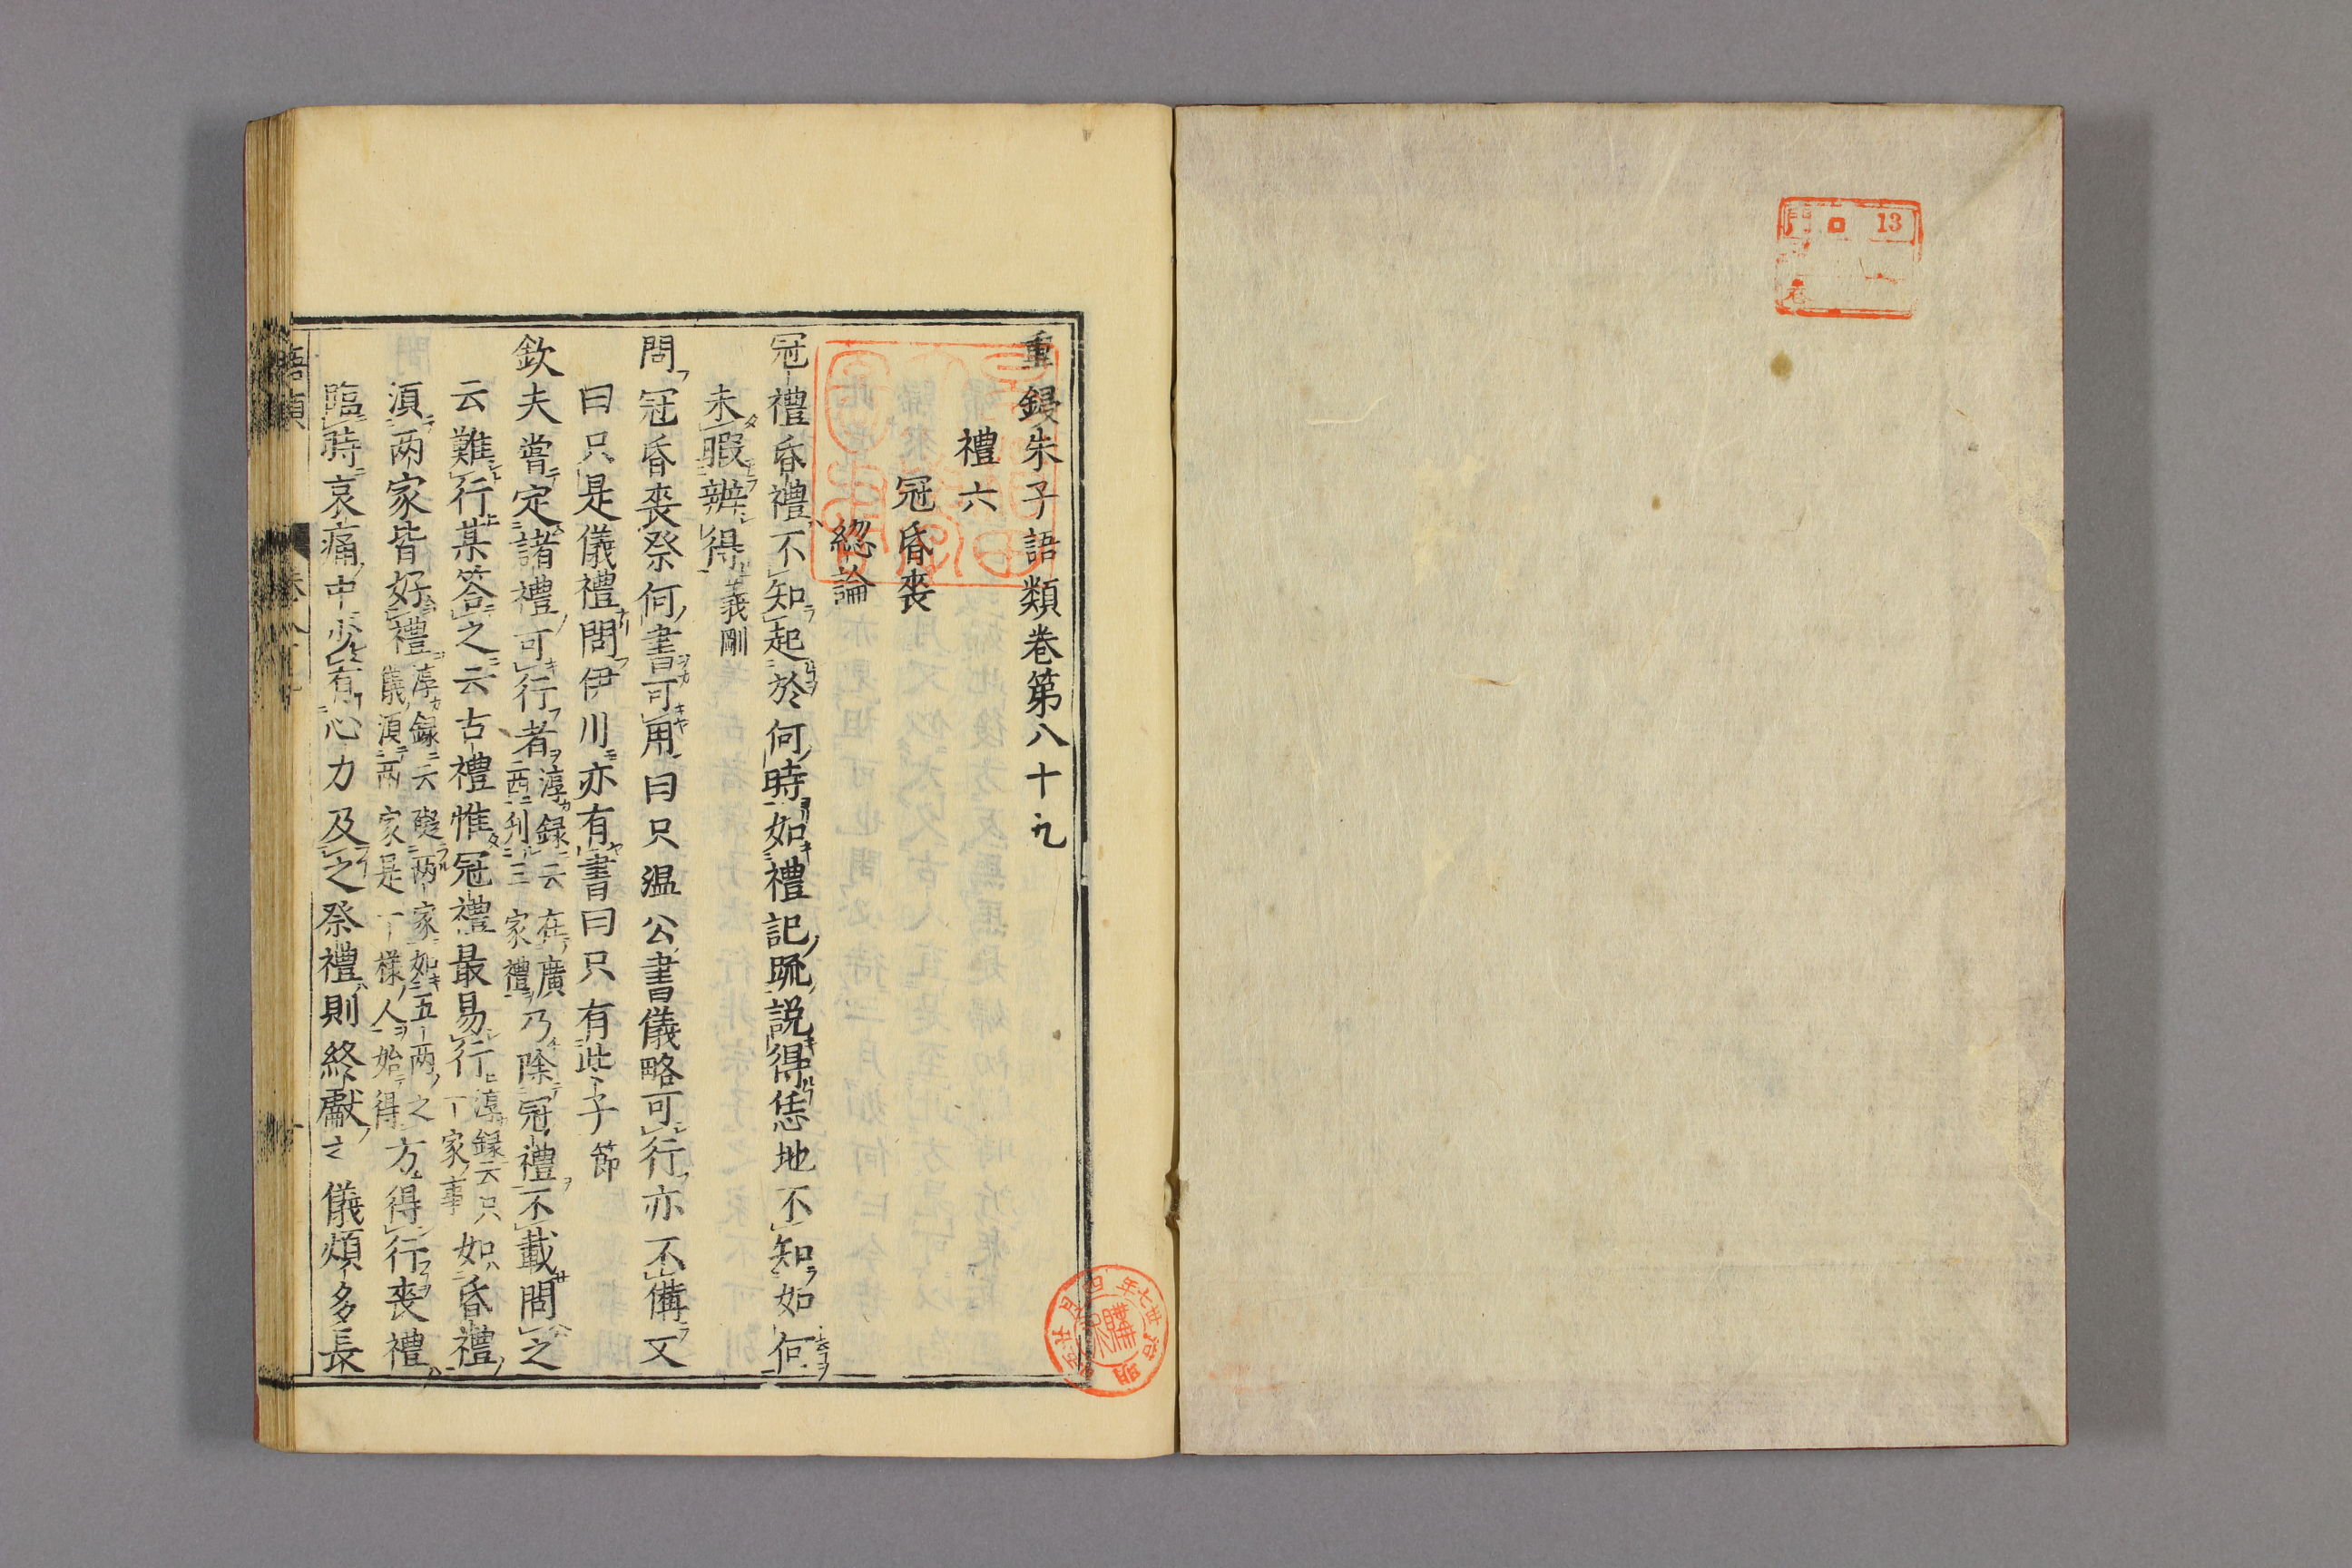 重鋟朱子語類卷第八十九
禮六
冠昏喪
総論
冠禮昏禮不知起於何時如禮記䟽説得恁地不知如何
未暇辨得義剛
問冠昏喪祭何書可用曰只温公書儀略可行亦不備又
曰只是儀禮問伊川亦有書曰只有些子節
欽夫嘗定諸禮可行者淳録云在廣西刋三家禮乃除冠禮不載問之
云難行某答之云古禮惟冠禮最易行淳録云只一家事如昏禮
湏两家皆好禮淳録云礙两家如五两之儀湏两家是一様人始得方得行喪禮
臨時哀痛中少有心力及之祭禮則終獻之儀煩多長
語類
卷八十九
一
13
門
卷
一
明治